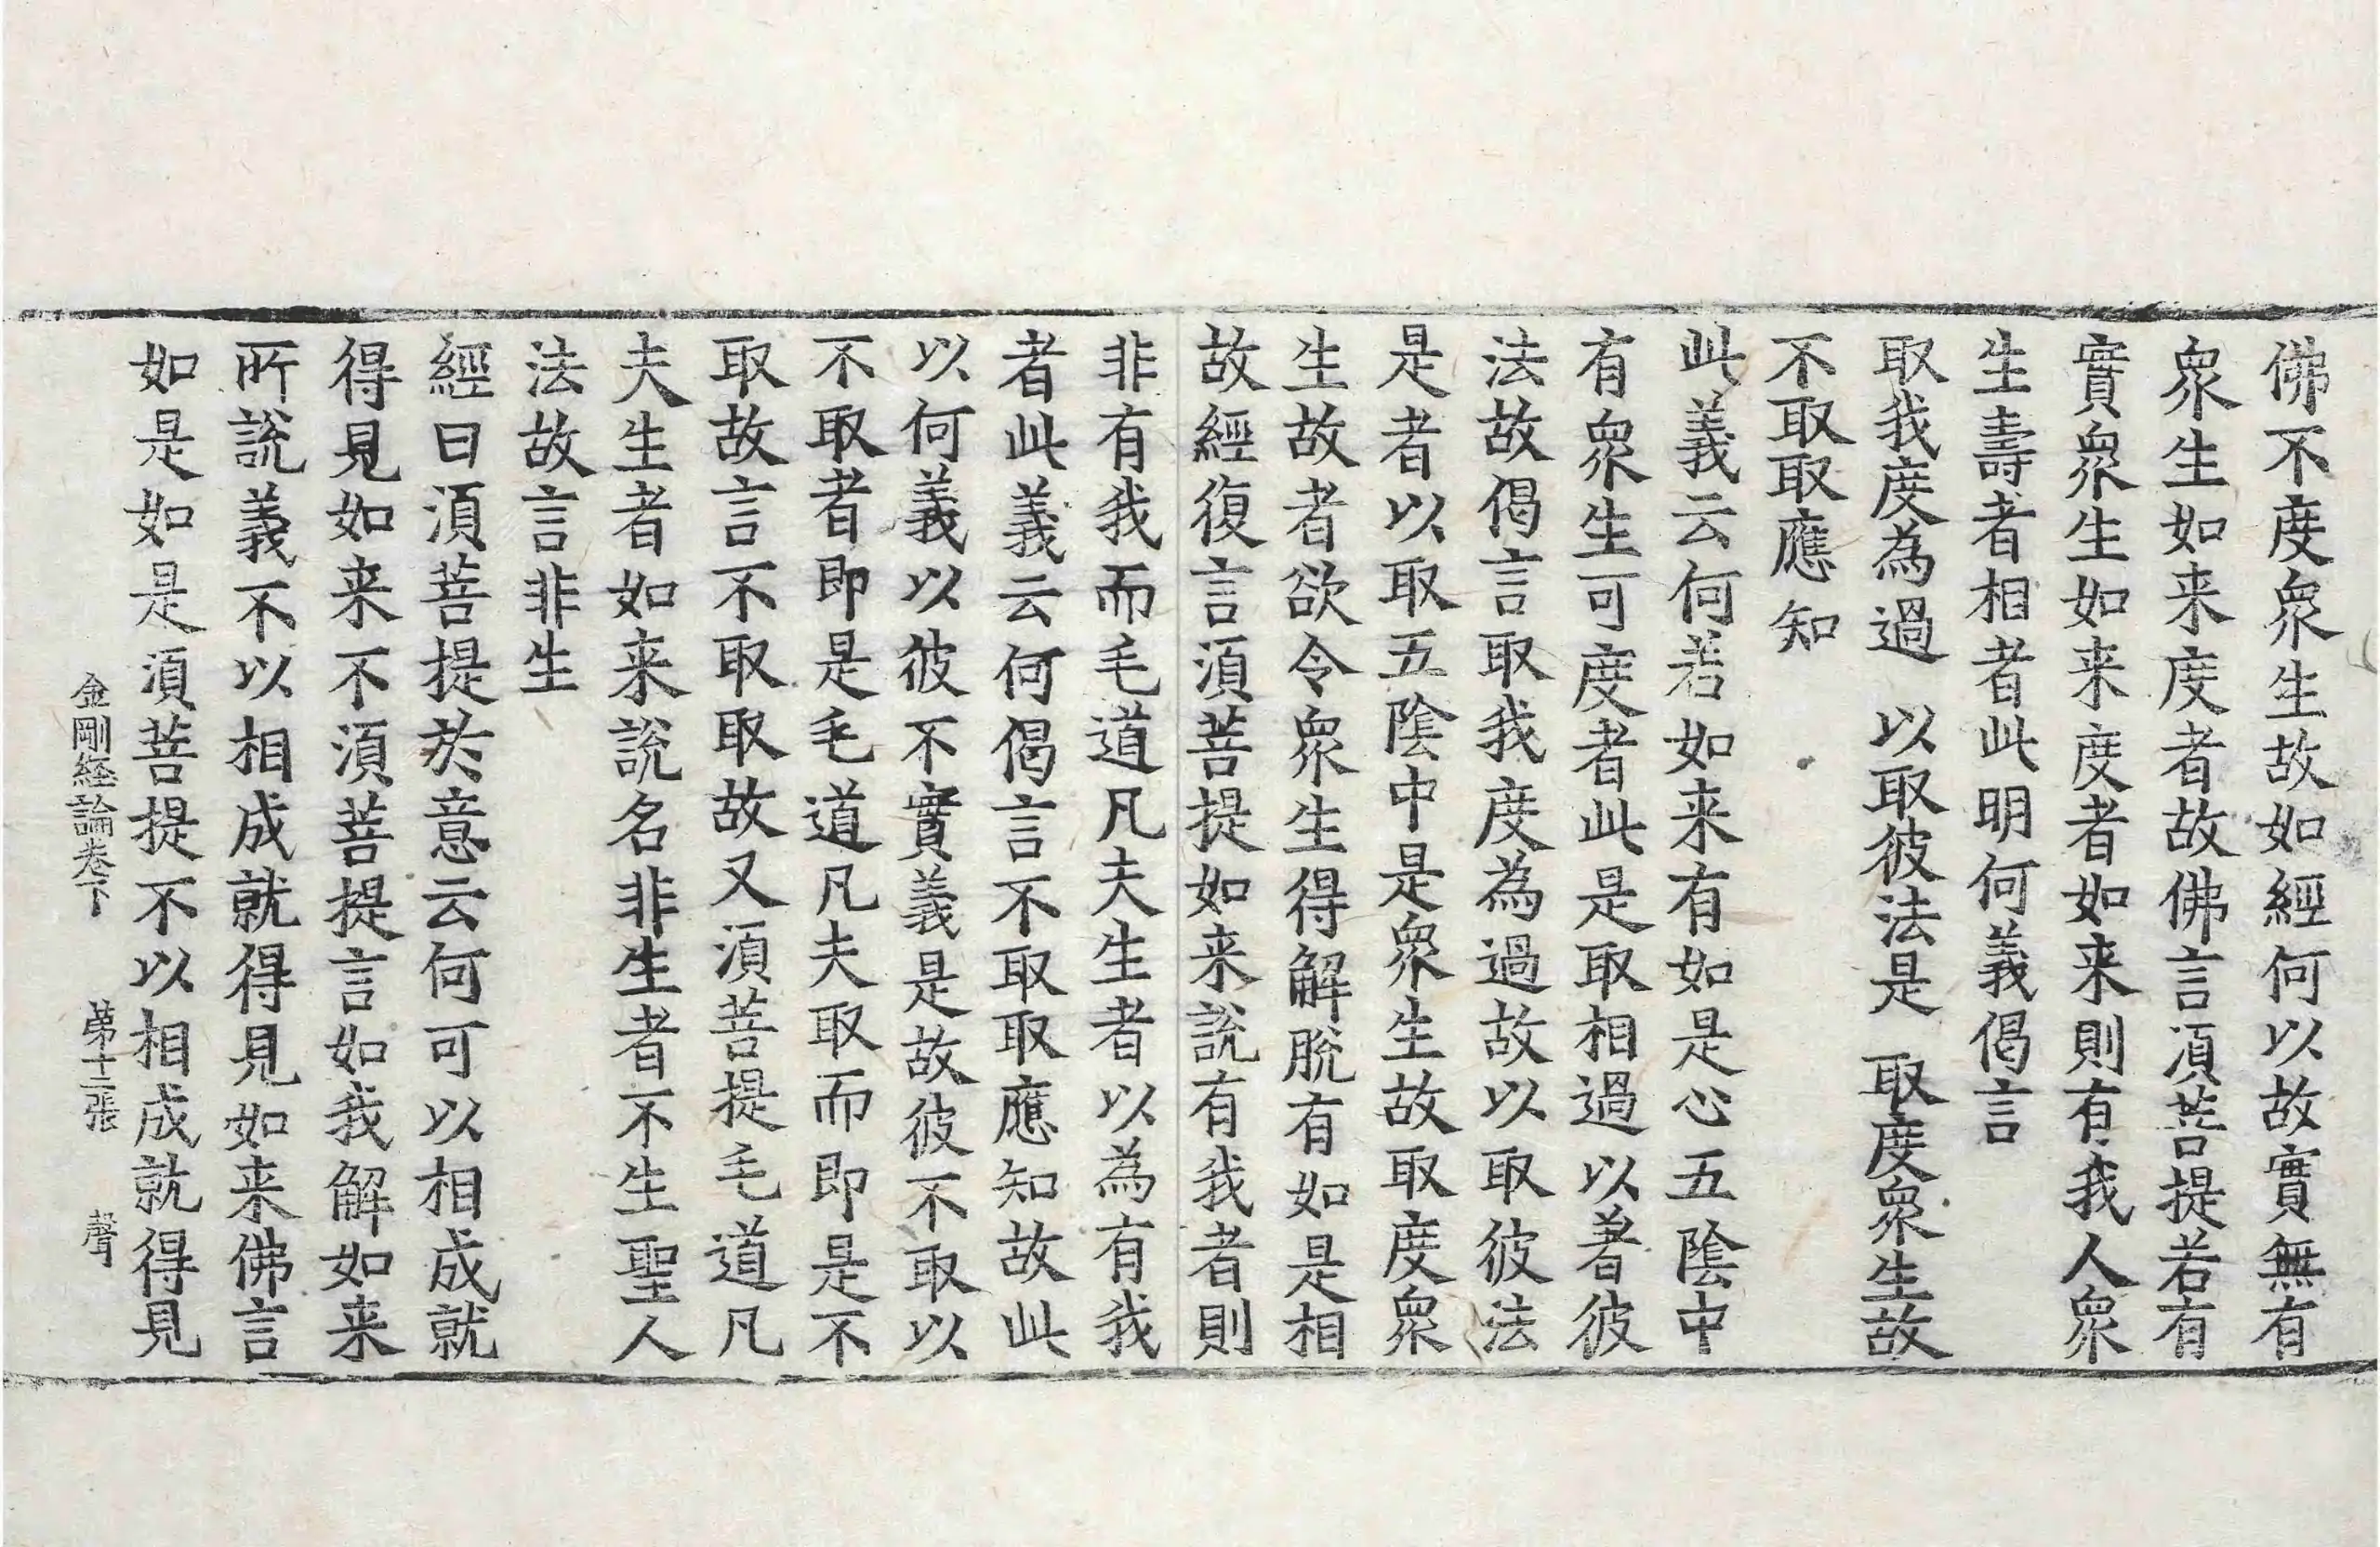 佛不度衆生故如經何以故實無有
衆生如来度者故佛言湏菩提若有
實衆生如来度者如来則有我人衆
生壽者相者此明何義偈言
取我度為過　以取彼法是　取度衆生故
不取取應知
此義云何若如来有如是心五陰中
有衆生可度者此是取相過以著彼
法故偈言取我度為過故以取彼法
是者以取五陰中是衆生故取度衆
生故者欲令衆生得解脫有如是相
故經復言湏菩提如来說有我者則
非有我而毛道凡夫生者以為有我
者此義云何偈言不取取應知故此
以何義以彼不實義是故彼不取以
不取者即是毛道凡夫取而即是不
取故言不取取故又湏菩提毛道凡
夫生者如来說名非生者不生聖人
法故言非生
經曰湏菩提於意云何可以相成就
得見如来不湏菩提言如我解如来
所說義不以相成就得見如来佛言
如是如是湏菩提不以相成就得見
金剛經論卷下　第十二張　聲